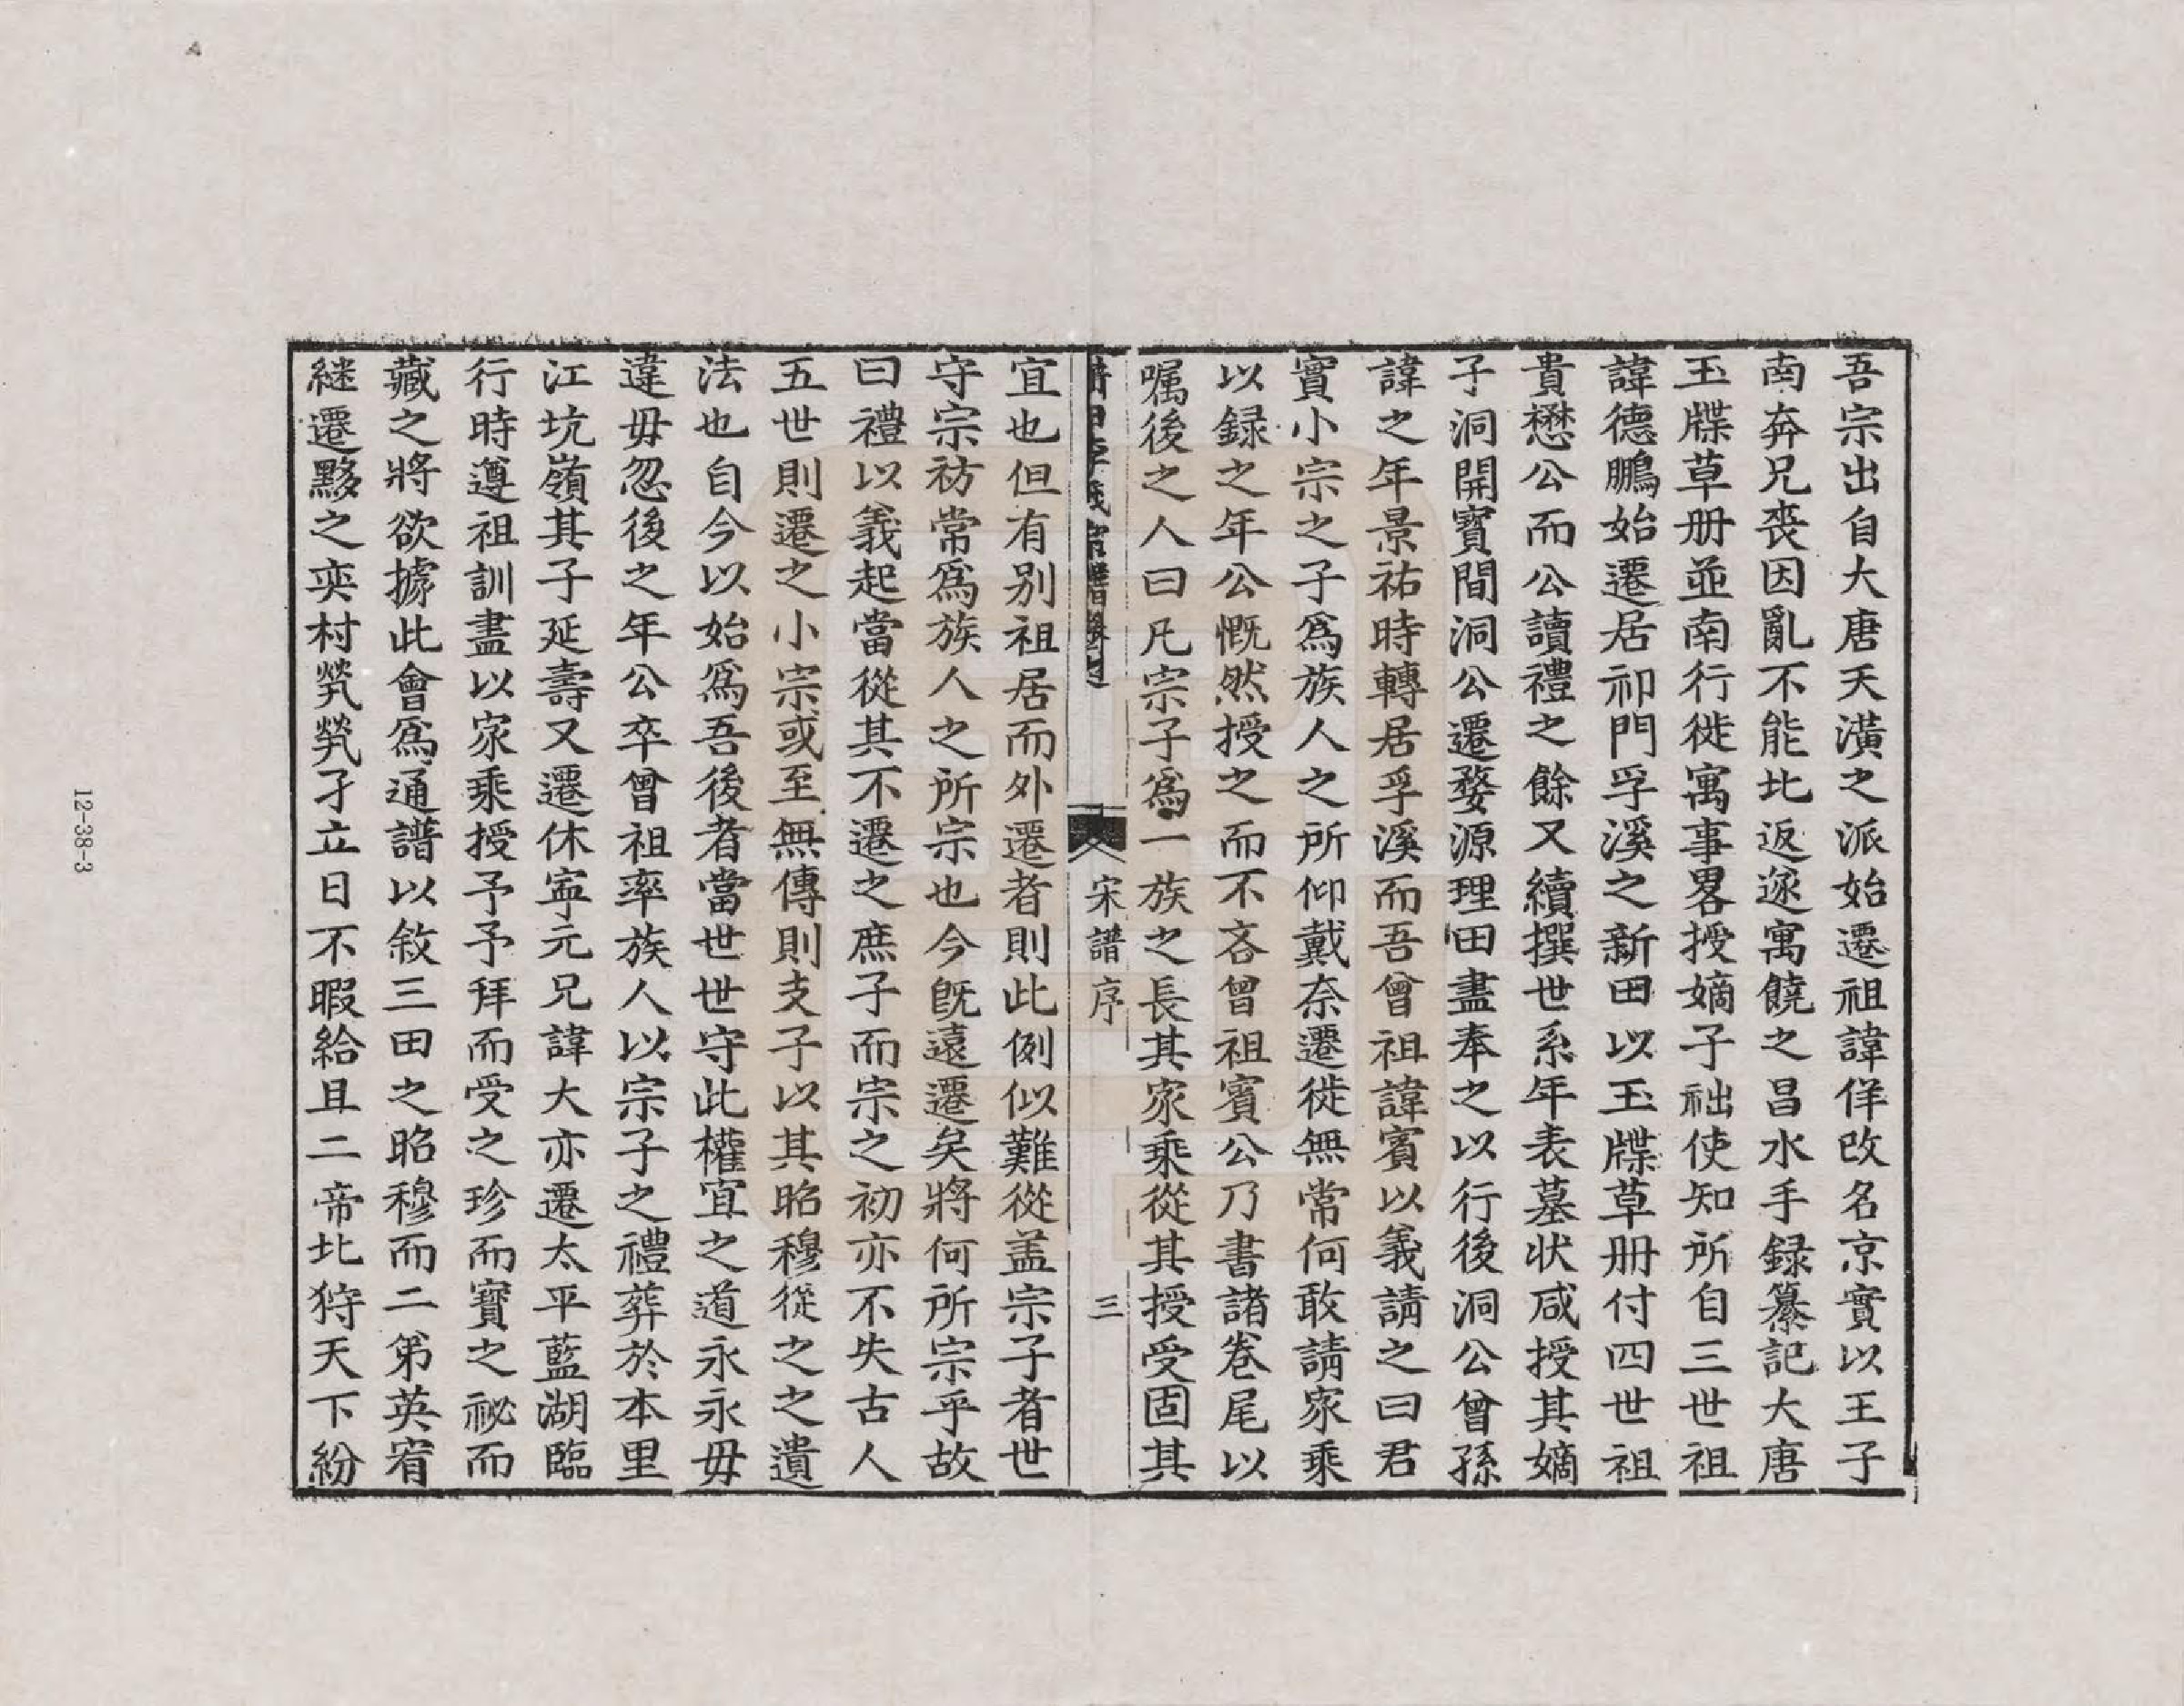 吾宗出自大唐天潢之派始遷祖諱佯改名京實以王子
南奔兄丧因亂不能北返遂寓饒之昌水手録纂記大唐
玉牒草册並南行徙寓事畧授嫡子祉使知所自三世祖
諱德鵬始遷居祁門孚溪之新田以玉牒草册付四世祖
貴懋公而公讀禮之餘又續撰世系年表墓状咸授其嫡
子洞開寳間洞公遷婺源理田盡奉之以行後洞公曾孫
諱之年景祐時轉居孚溪而吾曾祖諱賓以義請之曰君
實小宗之子爲族人之所仰戴奈遷徙無常何敢請家乘
以録之年公慨然授之而不吝曾祖賓公乃書諸卷尾以
嘱後之人曰凡宗子爲一族之長其家乘從其授受固其
宋譜序
三
宜也但有别祖居而外遷者則此例似難從盖宗子者世
守宗祊常爲族人之所宗也今旣遠遷矣將何所宗乎故
曰禮以義起當從其不遷之庶子而宗之初亦不失古人
五世則遷之小宗或至無傳則支子以其昭穆從之之遺
法也自今以始爲吾後者當世世守此權宜之道永永毋
違毋忽後之年公卒曾祖率族人以宗子之禮葬於本里
江坑嶺其子延壽又遷休寧元兄諱大亦遷太平藍湖臨
行時遵祖訓盡以家乘授予予拜而受之珍而寶之祕而
藏之將欲據此會爲通譜以敘三田之昭穆而二第英宥
継遷黟之奕村煢煢孑立日不暇給且二帝北狩天下紛
12-38-3